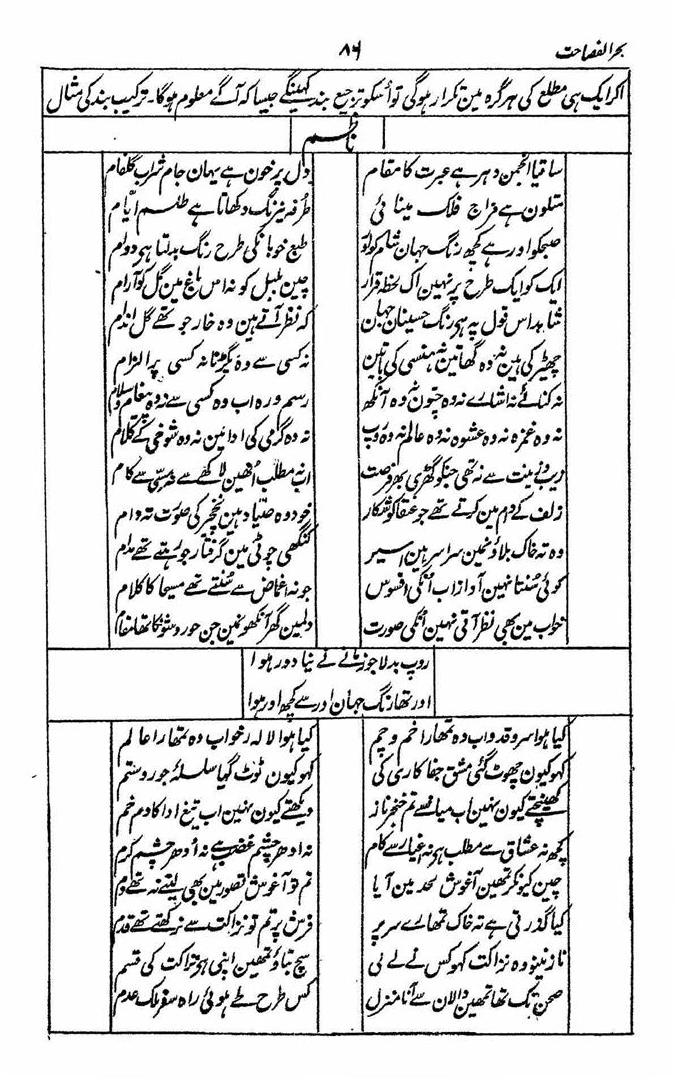 بحر الفصاحت
۸۶
اگر ایک ہی مطلع کی ہر گرہ مین تکرار ہوگی تو اُسکو ترجیع بند کہینگے جیسا کہ آگے معلوم ہوگا۔ ترکیب بند کی مثال
ناظم
ساقیا انجمن دہر ہے عبرت کا مقام
دل پرخون ہے یہان جام شراب گلفام
متلون ہے مزاج فلک مینائی
طرفہ نیرنگ دکھاتا ہے طلسم ایام
صبحکو اور ہے کچھ رنگ جہان شام کو اَو
طبع خوبانکی طرح رنگ بدلتا ہی دوام
ایک کو ایک طرح پر نہین اک لحظہ قرار
چین بلبل کو نہ اس باغ مین گل کو آرام
شاہد اس قول پہ ہے رنگ حسینان جہان
کہ نظر آتے ہین وہ خار جو تھے گل اندام
چھیڑ کی ہین نہ وہ گھاتین نہ ہنسی کی باتین
نہ کسی سے وہ بگڑنا نہ کسی پر الزام
نہ کنائے نہ اشارے نہ وہ چتون نہ وہ آنکھ
رسم و رہ اب وہ کسی سے نہ وہ پیغام و سلام
نہ وہ غمزہ نہ وہ عشوہ نہ وہ عالم نہ وہ روپ
نہ وہ گرمی کی ادائین نہ وہ شوخی کے کلام
زیب و زینت سے نہ تھی جنکو گھڑی بھر فرصت
اب نہ مطلب اُنھین لاکھے سے نہ مسی سے کام
زلف کے دام مین کرتے تھے جو عنقا کو شکار
خود وہ صیاد ہین نخچیر کی صورت تہ دام
وہ تہ خاک بلاؤنمین سراسر ہین اسیر
کنگھی چوٹی مین گرفتار جو رہتے تھے مدام
کوئی سُنتا نہین آواز اب اُنکی افسوس
جو نہ اغماض سے سُنتے تھے مسیحا کا کلام
خواب مین بھی نظر آتی نہین اُنکی صورت
دلمین گھر آنکھونمین جن حور وشونکا تھا مقام
روپ بدلا جو زمانے نے نیا دور ہوا
اور تھا رنگ جہان اور سے کچھ اور ہوا
کیا ہوا سرو قدو اب وہ تمھارا خم و چم
کیا ہوا لالہ رخو اب وہ تمھارا عالم
کہو کیون چھوٹ گئی مشق جفا کاری کی
کہو کیون ٹوٹ گیا سلسلۂ جور و ستم
کھینچتے کیون نہین اب میان سے تم خنجر ناز
دیکھتے کیون نہین اب تیغ ادا کا دم خم
کچھ نہ عشاق سے مطلب ہی نہ اغیار سے کام
نہ ادھر چشم غضب ہے نہ اُدھر چشم کرم
چین کیونکر تمھین آغوش لحد مین آیا
تم تو آغوش تصور مین بھی لیتے نہ تھے دم
کیا گذرتی ہے تہ خاک تمھارے سر پر
فرش پر تم تو نزاکت سے نہ رکھتے تھے قدم
نازنینو وہ نزاکت کہو کس نے لے لی
سچ بتاؤ تمھین اپنی ہی نزاکت کی قسم
صحن تک تھا تمھین دالان سے آنا منزل
کس طرح طے ہوئی راہ سفر ملک عدم